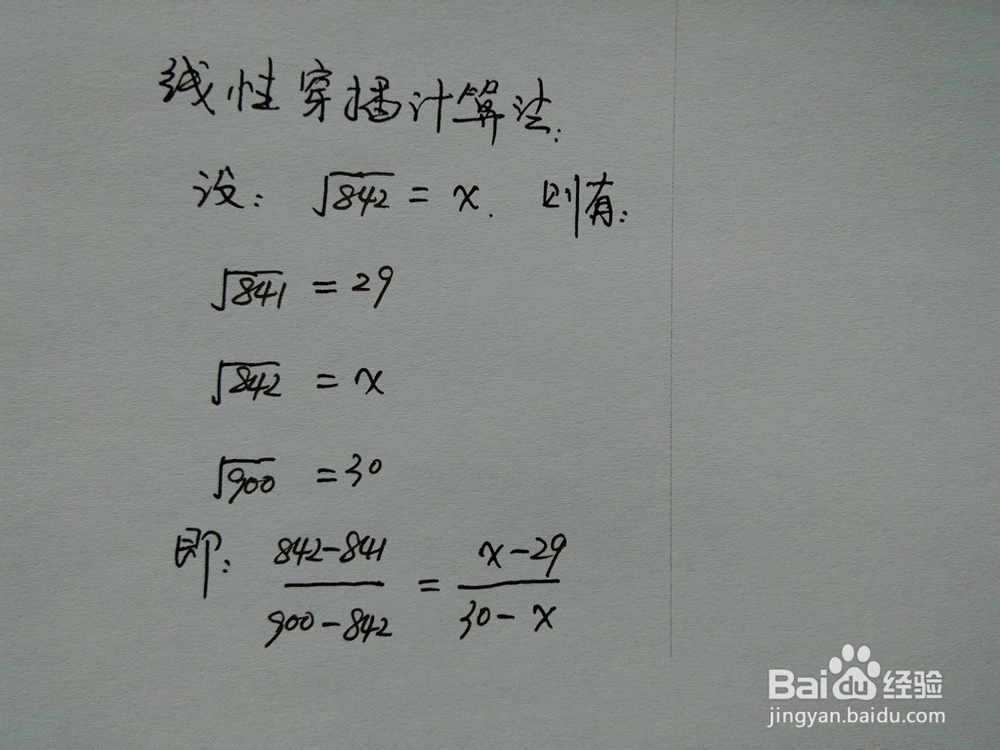 线性穿插计算法:
设: √842 = x. 则有:
√841 = 29
√842 = x
√900 = 30
即: (842-841)/(900-842) = (x-29)/(30-x)
Baidu 经验
jingyan.baidu.com